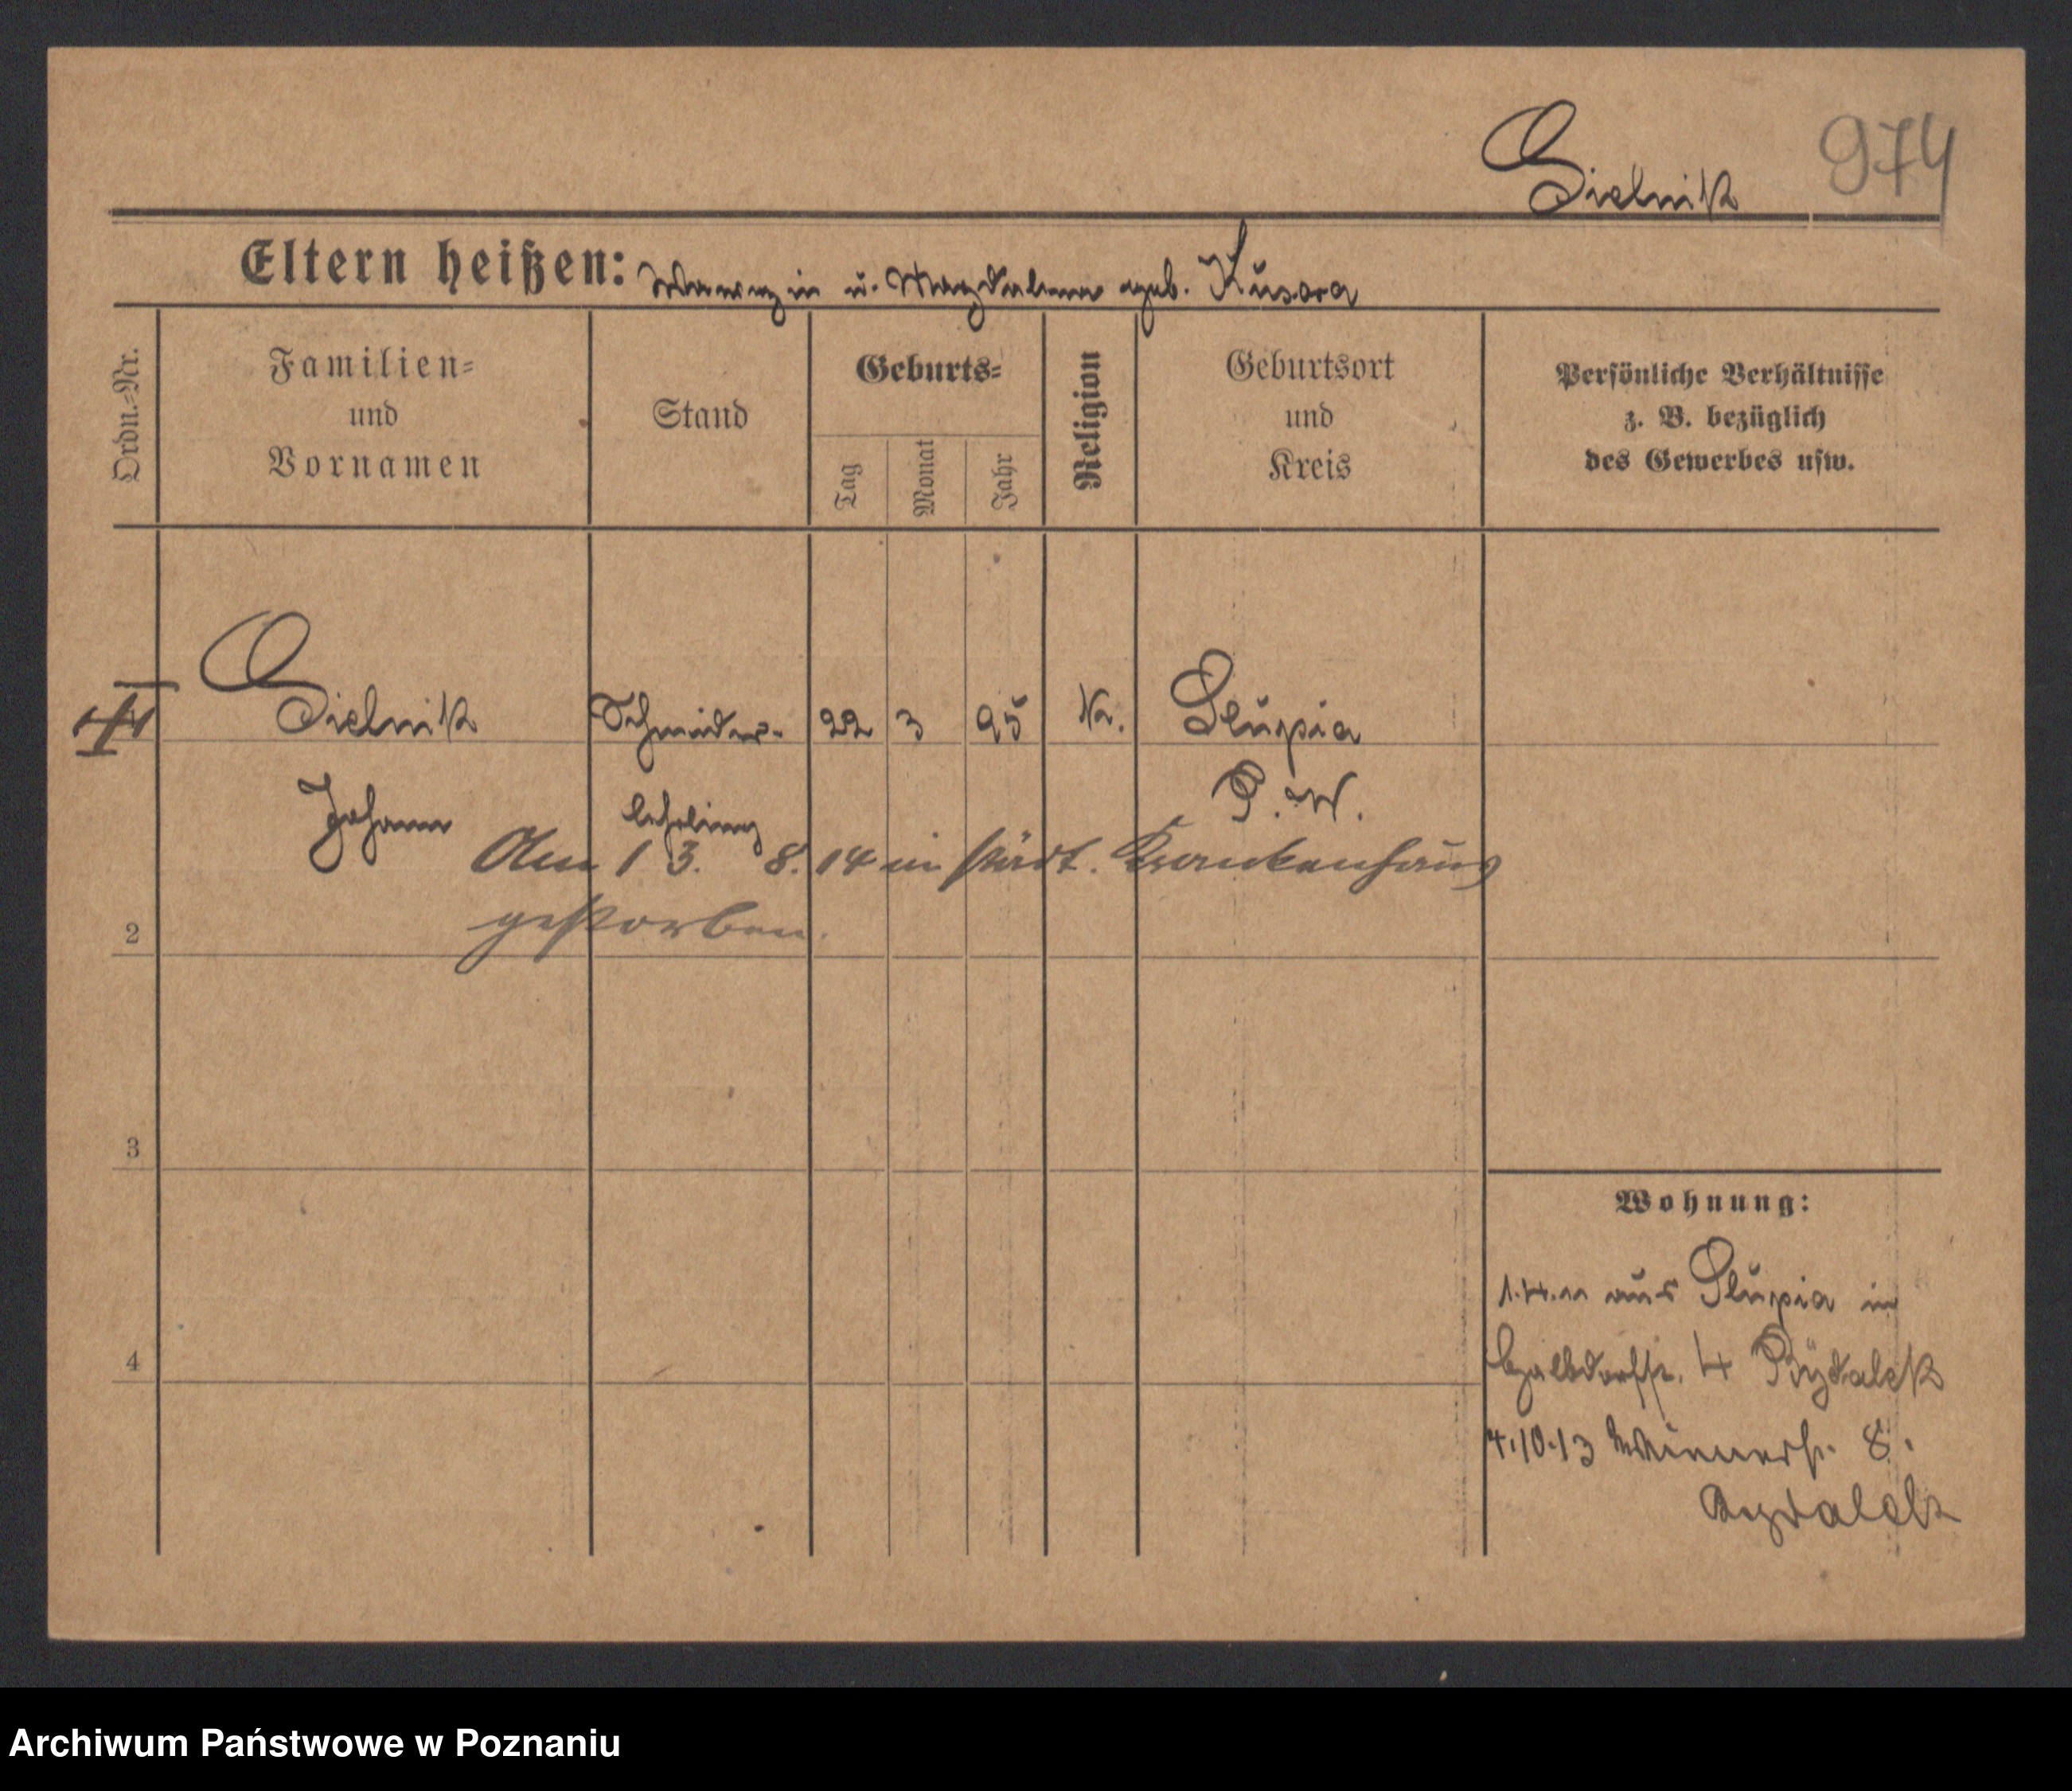 Sielnik 974
Eltern heißen: Wawrzin u. Magdalena geb. Kusova
Ordn.-Nr.
Familien-
und
Vornamen
Stand
Geburts-
Tag
Monat
Jahr
Religion
Geburtsort
und
Kreis
Persönliche Verhältnisse
z. B. bezüglich
des Gewerbes usw.
Sielnik Schneider- 22 3 95 K. Slupia
Johann lehrling P. W.
Am 13. 8. 14 im städt. Krankenhaus
gestorben.
2
3
4
Wohnung:
1.4.11 aus Slupia in
4
4.10.13 8.
Archiwum Państwowe w Poznaniu